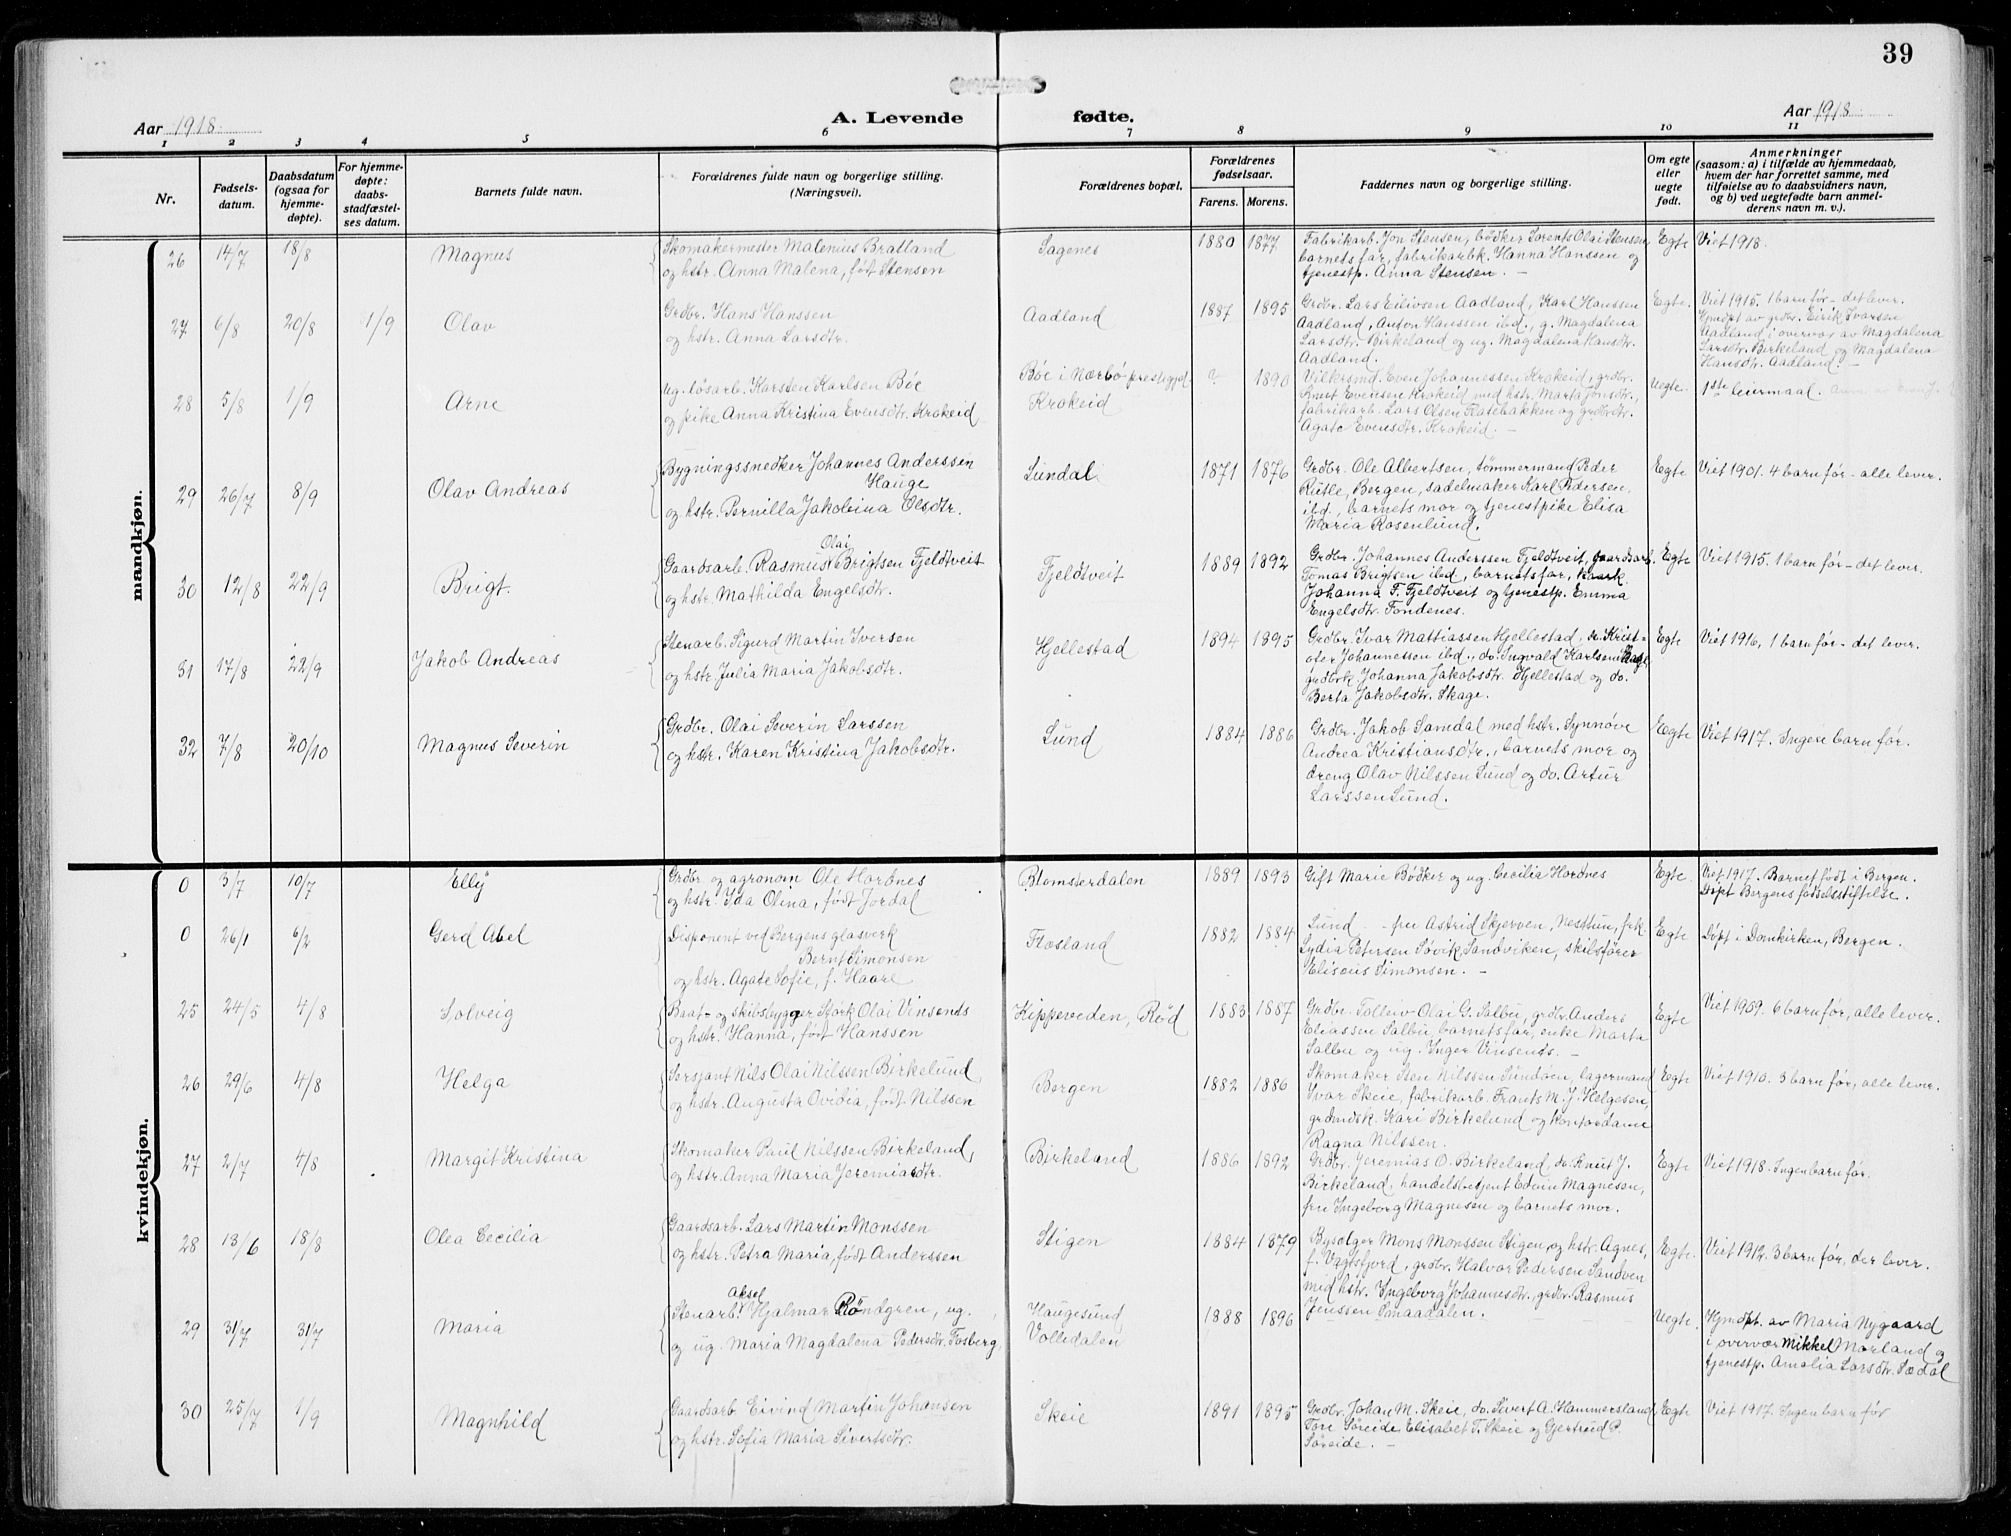 39
Aar 1918.
A. Levende fødte.
Aar 1918.
1 2 3 4 5 6 7 8 9 10 11
Nr.
Fødsels-
datum.
Daabsdatum
(ogsaa for
hjemme-
døpte).
For hjemme-
døpte:
daabs-
stadfæstel-
ses datum.
Barnets fulde navn.
Forældrenes fulde navn og borgerlige stilling.
(Næringsvei).
Forældrenes bopæl.
Forældrenes
fødselsaar.
Farens. Morens.
Faddernes navn og borgerlige stilling.
Om egte
eller
uegte
født.
Anmerkninger
(saasom: a) i tilfælde av hjemmedaab,
hvem der har forrettet samme, med
tilføielse av to daabsvidners navn,
og b) ved uegtefødte barn anmel-
derens navn m. v.).
mandkjøn.
26 14/7 18/8 Magnus
Skomakermester Malenius Bratland
og hstr. Anna Malena, født Stensen
Sagenes 1880 1877
Fabrikarb. Jon Stensen, bødker Sorents Olai Stensen,
barnets far, fabrikarbk. Hanna Hanssen og
tjenestp. Anna Stensen. —
Egte Viet 1918.
27 6/8 20/8 1/9 Olav
Grdbr. Hans Hanssen
og hstr. Anna Larsdtr.
Aadland 1887 1895
Grdbr. Lars Eilivsen Aadland, Karl Hanssen
Aadland, Anton Hanssen ibd., g. Magdalena
Larsdtr. Birkeland og ug. Magdalena Hansdtr.
Aadland.
Egte.
Viet 1915. 1 barn før - det lever.
Hjmdpt av grdbr. Eirik Ivarsen
Aadland i overvær av Magdalena
Larsdtr. Birkeland og Magdalena
Hansdtr. Aadland. —
28 5/8 1/9 Arne
Ug. løsarb. Karsten Karlsen Bøe
og pike Anna Kristina Evensdtr. Krokeid
Bøe i Nærbø prestegjd.
Krokeid
? 1890
Vilkersmd. Even Johannessen Krokeid, grdbr.
Knut Evensen Krokeid med hstr. Marta Jonsdtr.,
fabrikarb. Lars Olsen Flatebakken og grdbrdtr.
Agate Evensdtr. Krokeid. —
Uegte. 1ste leiermaal.
29 26/7 8/9 Olav Andreas
Bygningssnedker Johannes Anderssen
Hauge
og hstr. Pernilla Jakobina Olsdtr.
Lundal 1871 1876
Grdbr. Ole Albertsen, tømmermand Peder
Rutle, Bergen, sadelmaker Karl Pedersen
ibd., barnets mor og tjenestpike Elisa
Maria Rosenlund.
Egte Viet 1901. 4 barn før - alle lever.
30 12/8 22/9 Brigt.
Olai
Gaardsarb. Rasmus Brigtsen Fjeldtveit
og hstr. Mathilda Engelsdtr.
Fjeldtveit 1889 1892
Grdbr. Johannes Anderssen Fjeldtveit, gaardsarb.
Tomas Brigtsen ibd, barnets far, kaark.
Johanna F. Fjeldtveit og tjenestp. Emma
Engelsdtr. Tondenes.
Egte Viet 1915. 1 barn før - det lever.
31 17/8 22/9 Jakob Andreas
Stenarb. Sigurd Martin Iversen
og hstr. Julia Maria Jakobsdtr.
Hjellestad 1894 1895
Grdbr. Ivar Mattiassen Hjellestad, do. Krist-
ofer Johannessen ibd., do. Ingvald Karlsen
grdbrk Johanna Jakobsdtr. Hjellestad og do.
Berta Jakobsdtr. Skage.
Egte Viet 1916, 1 barn før - det lever.
32 7/8 20/10 Magnus Severin
Grdbr. Olai Severin Larssen
og hstr. Karen Kristina Jakobsdtr.
Lund 1884 1886
Grdbr. Jakob Samdal med hstr. Synnøve
Andrea Kristiansdtr., barnets mor og
dreng Olav Nilssen Lund og do. Artur
Larssen Lund.
Egte Viet 1917. Ingen barn før.
kvindekjøn.
0 3/7 10/7 Elly
Grdbr og agronom Ole Hordnes
og hstr. Ida Olina, født Jordal
Blomsterdalen 1889 1893
Gift Marie Bødker og ug. Cecilia Hordnes
Egte.
Viet 1917. Barnet født i Bergen.
Døpt Bergens fødselsstiftelse.
0 26/1 6/2 Gerd Abel
Disponent ved Bergens glasverk
Bernt Simonsen
og hstr. Agate Sofie, f. Haare
Flesland 1882 1884
Lund — fru Astrid Skjerven, Nesttun, frk.
Lydia Petersen Søvik Sandviken, skibsfører
Eliseus Simonsen. —
Egte Døpt i Domkirken, Bergen.
25 24/5 4/8 Solveig
Baat- og skibsbygger Stork Olai Vinsents
og hstr. Hanna, født Hanssen
Kippeveden, Rød 1883 1887
Grdbr. Tolleiv Olai G. Salbu, grdbr. Anders
Eliassen Salbu barnets far, enke Marta
Salbu og ug. Inger Vinsents. —
Egte Viet 1909. 6 barn før, alle lever.
26 29/6 4/8 Helga
Sersjant Nils Olai Nilssen Birkelund,
og hstr. Augusta Ovidia, født Nilssen
Bergen 1882 1886
Skomaker Sten Nilssen Sundøen, lagermand
Ivar Skeie, fabrikarb. Frants M. J. Helgesen,
grdmdsk. Kari Birkelund og kontordame
Ragna Nilssen.
Egte Viet 1910. 3 barn før, alle lever.
27 2/7 4/8 Margit Kristina
Skomaker Paul Nilssen Birkeland,
og hstr. Anna Maria Jeremiasdtr.
Birkeland 1886 1892
Grdbr. Jeremias O. Birkeland, do. Knut J.
Birkeland, handelsbetjent Edvin Magnesen,
fru Ingeborg Magnesen og barnets mor.
Egte Viet 1918. Ingen barn før.
28 13/6 18/8 Olea Cecilia
Gaardsarb. Lars Martin Monssen
og hstr. Petra Maria, født Anderssen
Stigen 1884 1879
Byselger Mons Monssen Stigen og hstr. Agnes,
f. Vagtsfjord, grdbr. Halvor Pedersen Sandven
med hstr. Ingeborg Johannesdtr., grdbr. Rasmus
Jenssen Smaadalen.
Egte. Viet 1912. 3 barn før, der lever.
29 31/7 31/7 Maria
Aksel
Stenarb. Hjalmar Röndgren, ug.
og ug. Maria Magdalena Pedersdtr. Fosberg
Haugesund
Volledalen
1888 1896
Uegte.
Hjmdpt. av Maria Nygaard
i overvær Mikkel Morland og
tjenestp. Amalia Larsdtr. Sædal
30 25/7 1/9 Magnhild
Gaardsarb Eivind Martin Johansen
og hstr. Sofia Maria Sivertsdtr.
Skeie 1891 1895
Grdbr. Johan M. Skeie, do. Sivert A. Hammersland,
Tore Søreide, Elisabet T. Skeie og Gjertrud P.
Søreide. —
Egte Viet 1917. Ingen barn før